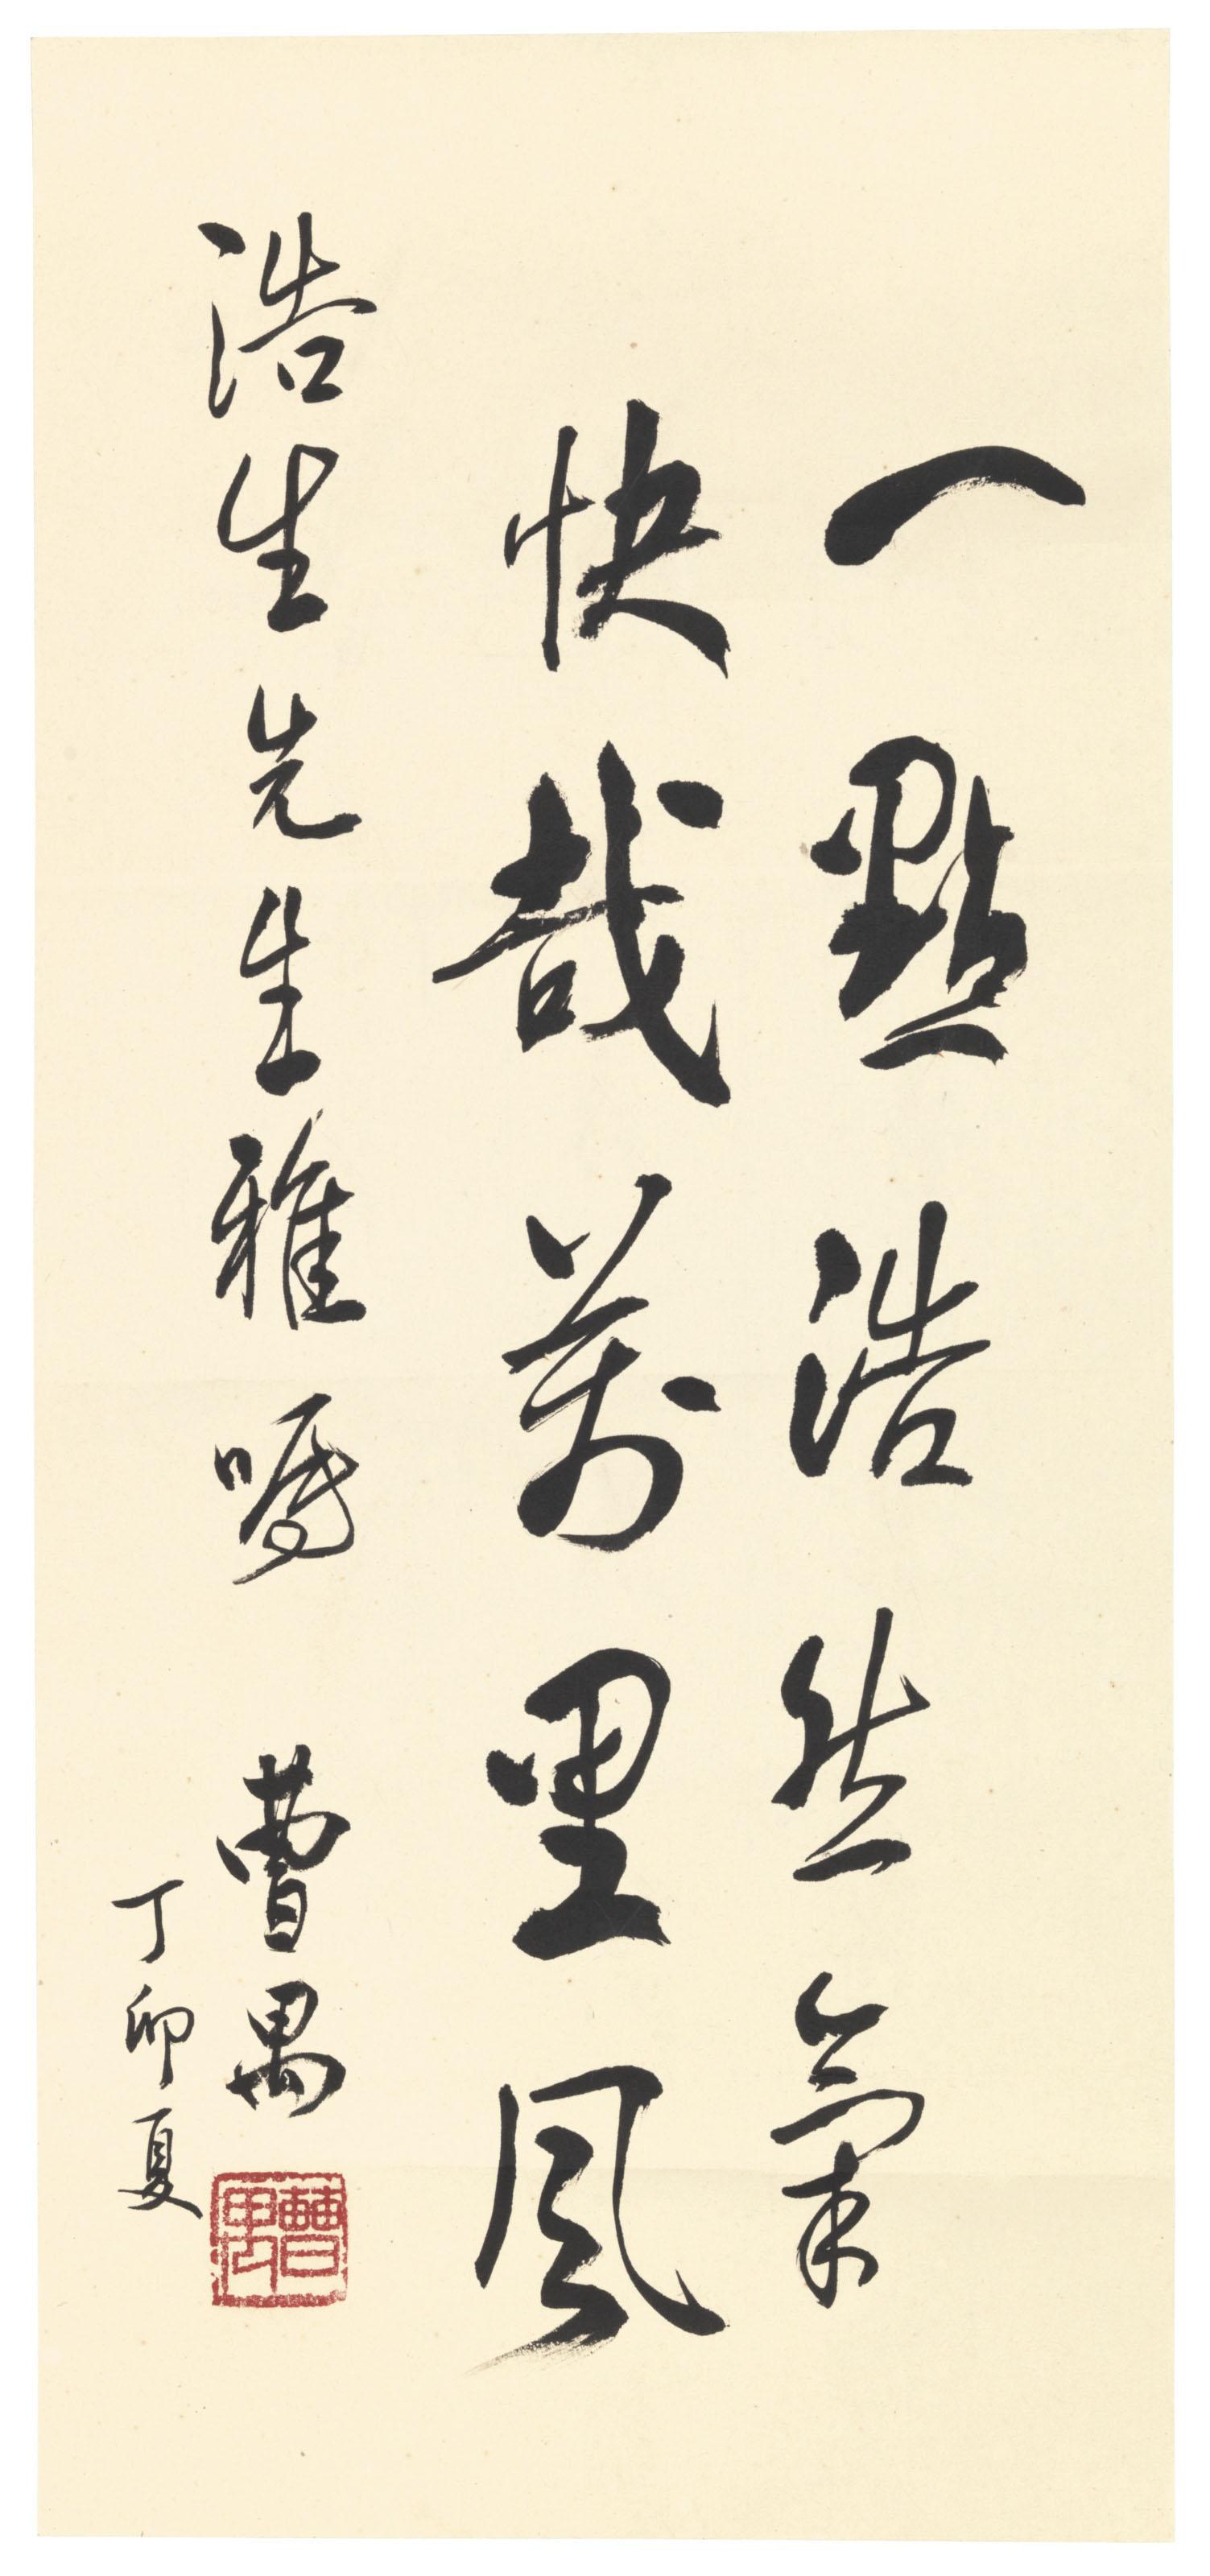 一點浩然氣
快哉萬里風
浩生先生雅嘱 曹禺
丁卯夏
曹禺